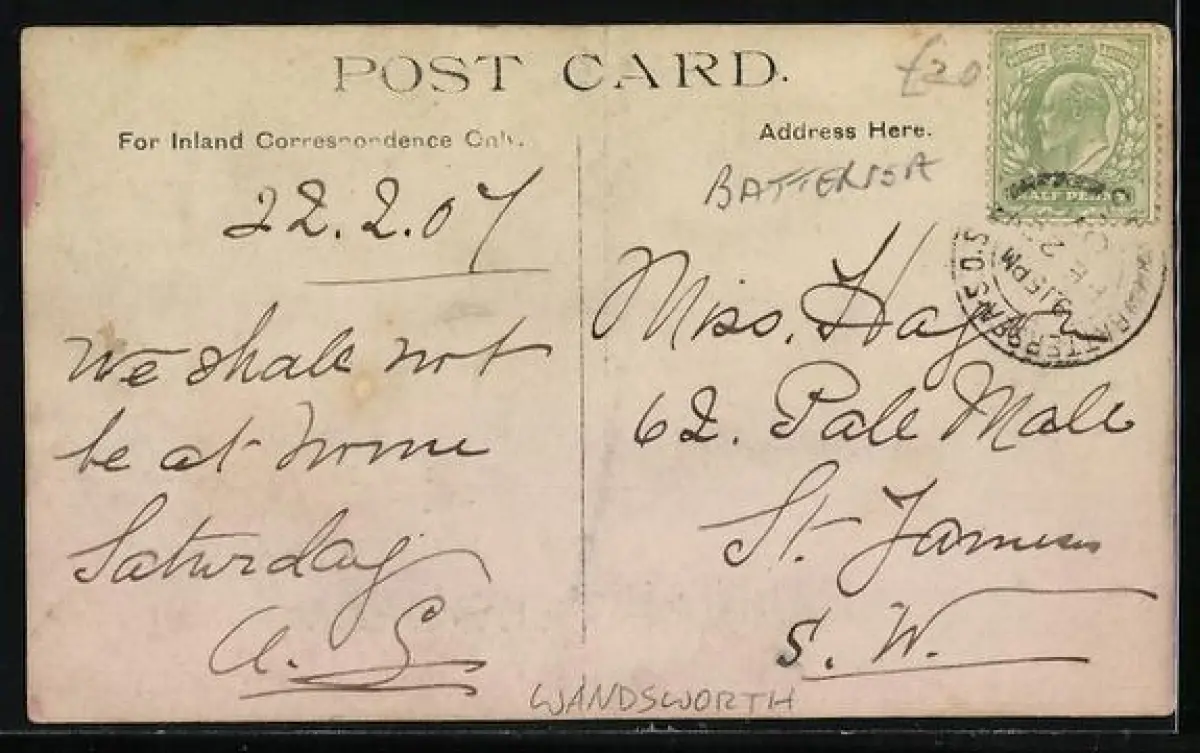 POST CARD.
£20
For Inland Correspondence Only.
Address Here.
BATTERSEA
HALF PENNY
BATTERSEA S.O. S.W.
9.15 PM
22.2.07
We shall not
be at home
Saturday
A. S
Miss. Hagon
62. Pale Male
St. James
S. W.
WANDSWORTH